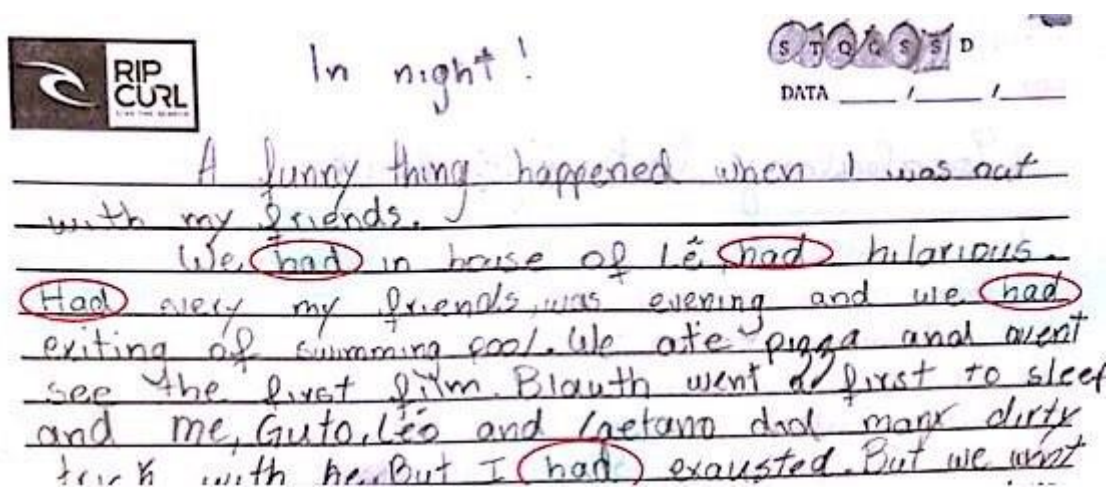 In night!
RIP
CURL
S T Q Q S S D
DATA ___/___/___
A funny thing happened when I was out
with my friends.
We, had in house of Lê, had hilarious.
Had very my friends, was evening and we had
exiting of swimming pool. We ate pizza and went
see the first film. Blauth went first to sleep
and me, Guto, Léo and Caetano did many dirty
trick with he. But I had exausted. But we went